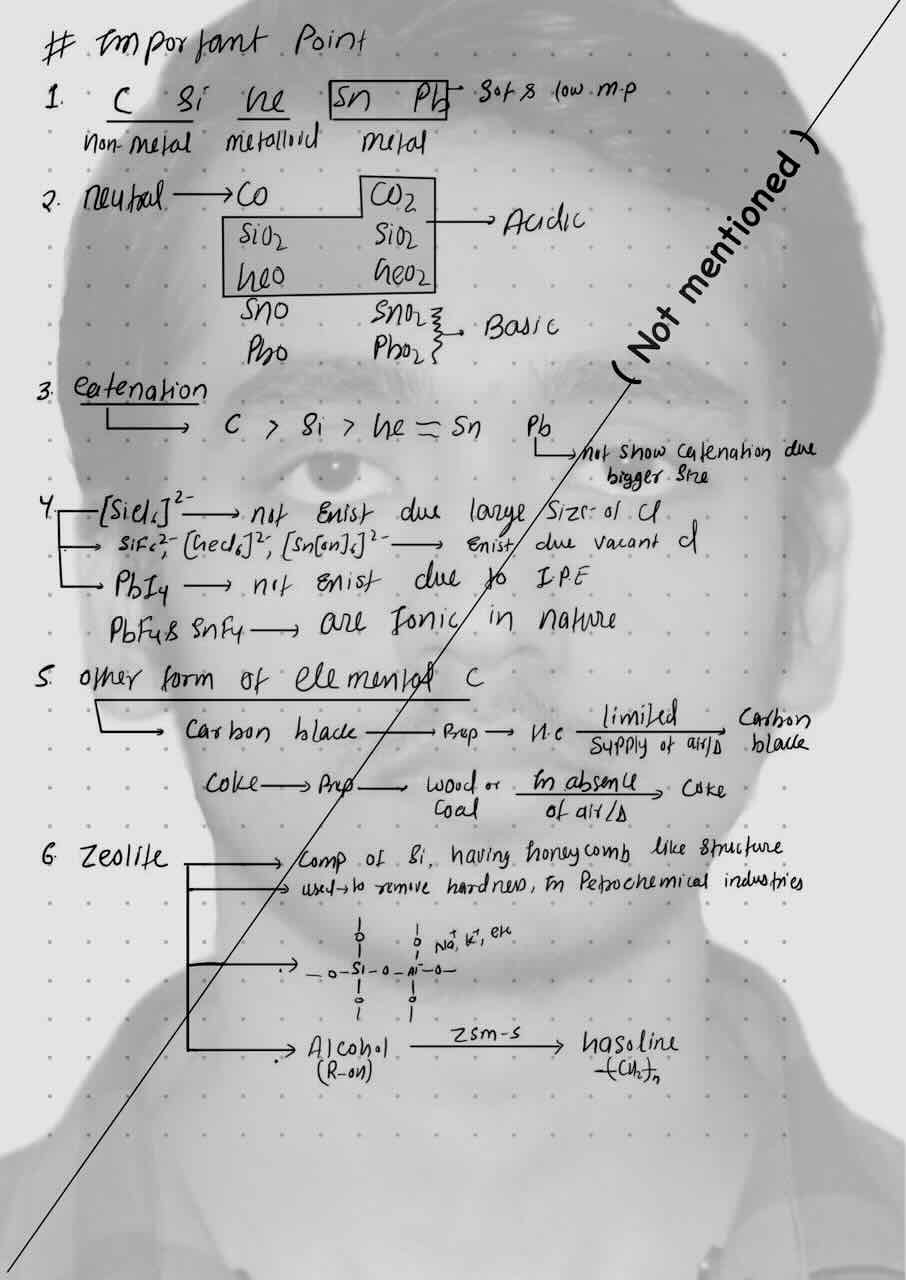 # Important Point
1. C Si Ge Sn Pb → Soft & low m.p
non-metal metalloid metal
2. neutral → CO CO2
SiO2 SiO2 → Acidic
GeO GeO2
SnO SnO2
PbO PbO2 → Basic
3. Catenation
→ C > Si > Ge = Sn Pb
→ not show catenation due
bigger size
4. [SiCl6]2- → not Exist due large Size of Cl
→ SiF62-, [GeCl6]2-, [Sn(OH)6]2- → Exist due vacant d
→ PbI4 → not Exist due to I.P.E
PbF4 & SnF4 → are Ionic in nature
5. other form of elemental C
→ Carbon black → Prep → H.C limited supply of air/Δ → Carbon black
Coke → Prep → wood or coal In absence of air/Δ → Coke
6. Zeolite → Comp of Si, having honeycomb like structure
→ used → to remove hardness, In Petrochemical industries
O O Na+, K+, etc
→ -O-Si-O-Al--O-
O O
→ Alcohol ZSM-5 → Gasoline
(R-OH) -(CH2)n
( Not mentioned )